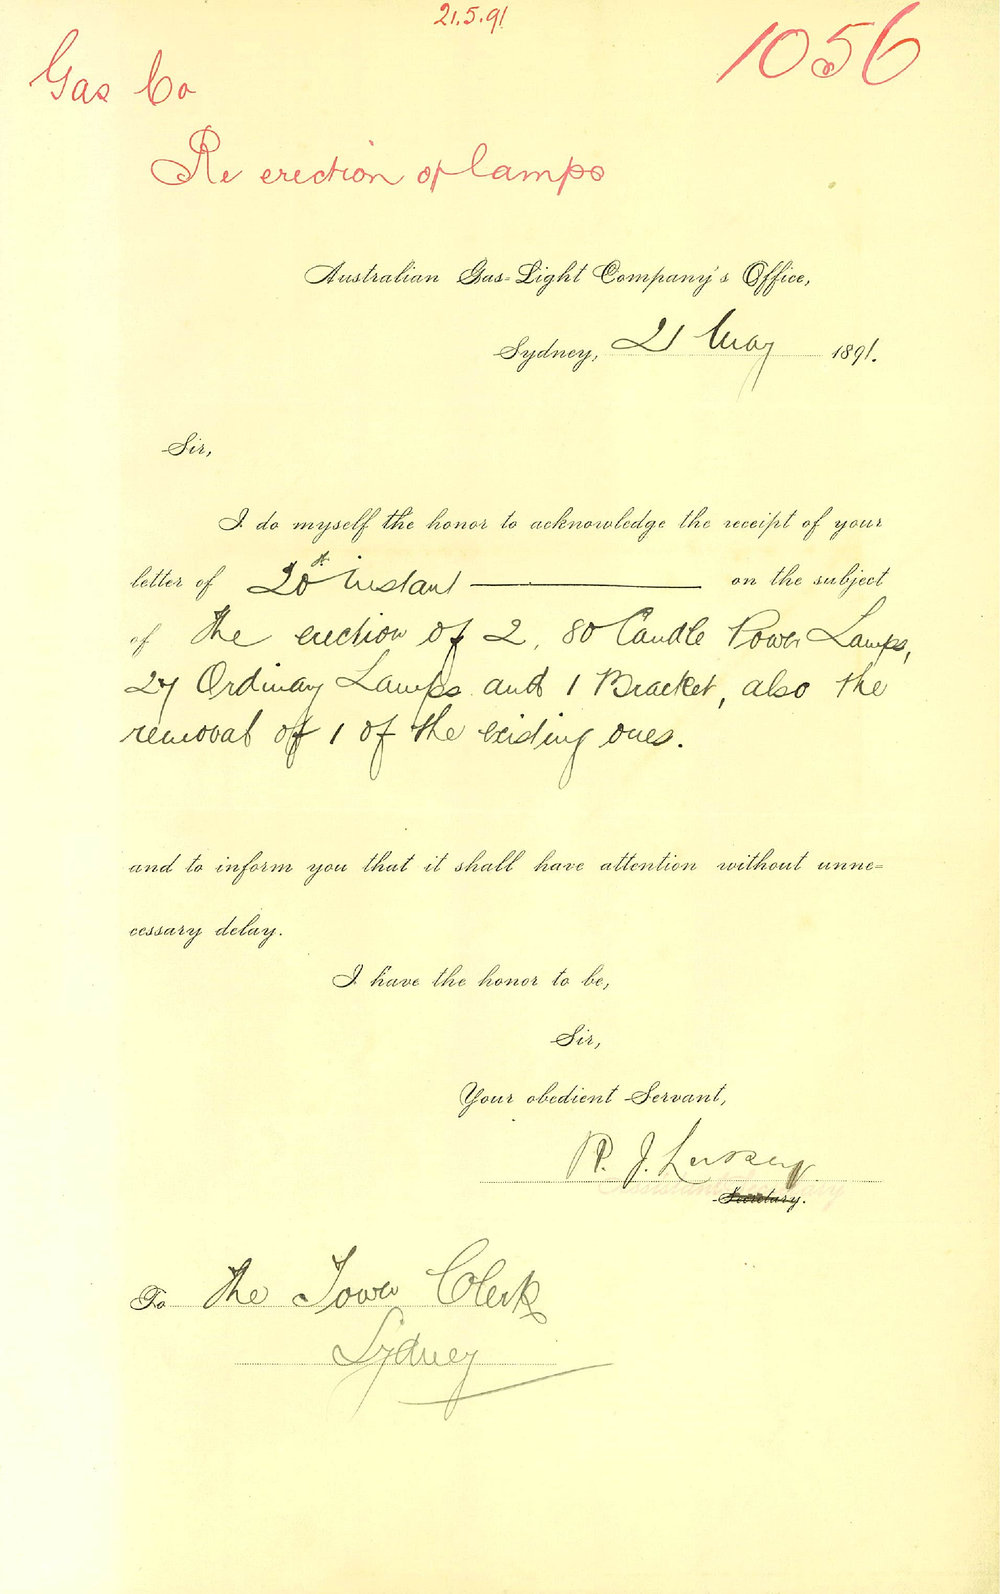 21.5.91
1056
Gas Co
Re erection of lamps
Australian Gas-Light Company's Office,
Sydney, 21 May 1891.
Sir,
I do myself the honor to acknowledge the receipt of your
letter of 20th Instant on the subject
of the erection of 2, 80 Candle Power Lamps,
27 Ordinary Lamps and 1 Bracket, also the
removal of 1 of the existing ones.
and to inform you that it shall have attention without unne=
cessary delay.
I have the honor to be,
Sir,
Your obedient Servant,
R. J.
Assistant Secretary
Secretary.
To The Town Clerk
Sydney